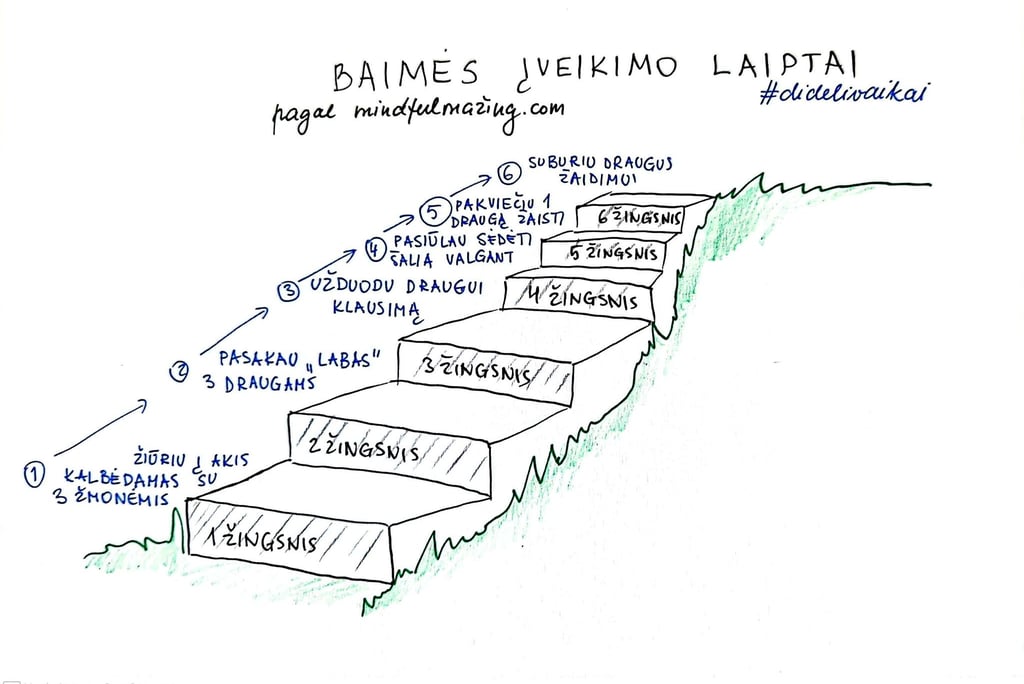 BAIMĖS ĮVEIKIMO LAIPTAI
#didelivaikai
pagal mindfulmažing.com
6 SUBURIU DRAUGUS
ŽAIDIMUI
5 PAKVIEČIU 1
DRAUGĄ ŽAISTI
4 PASIŪLAU SĖDĖTI
ŠALIA VALGANT
3 UŽDUODU DRAUGUI
KLAUSIMĄ
2 PASAKAU „LABAS"
3 DRAUGAMS
1 ŽIŪRIU Į AKIS
KALBĖDAMAS SU
3 ŽMONĖMIS
6 ŽINGSNIS
5 ŽINGSNIS
4 ŽINGSNIS
3 ŽINGSNIS
2 ŽINGSNIS
1 ŽINGSNIS